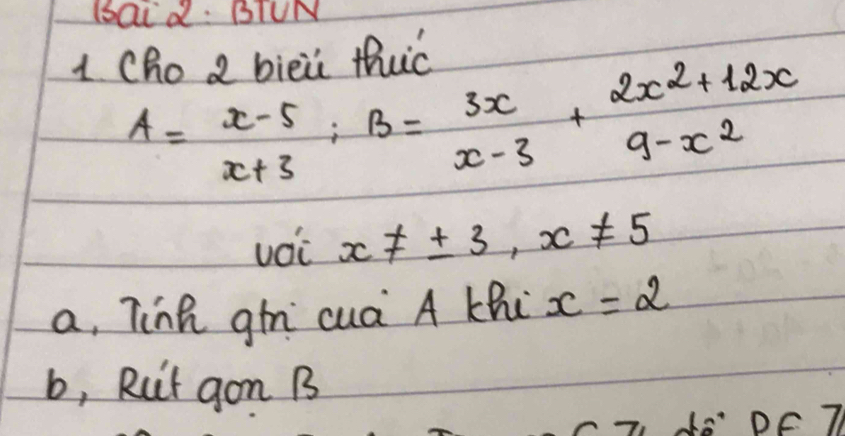 Bài 2: BTVN
1. Cho 2 biểu thức
A = x-5/x+3 ; B = 3x/x-3 + 2x²+12x/9-x²
với x ≠ ± 3, x ≠ 5
a, Tính gtrị của A khi x = 2
b, Rút gọn B